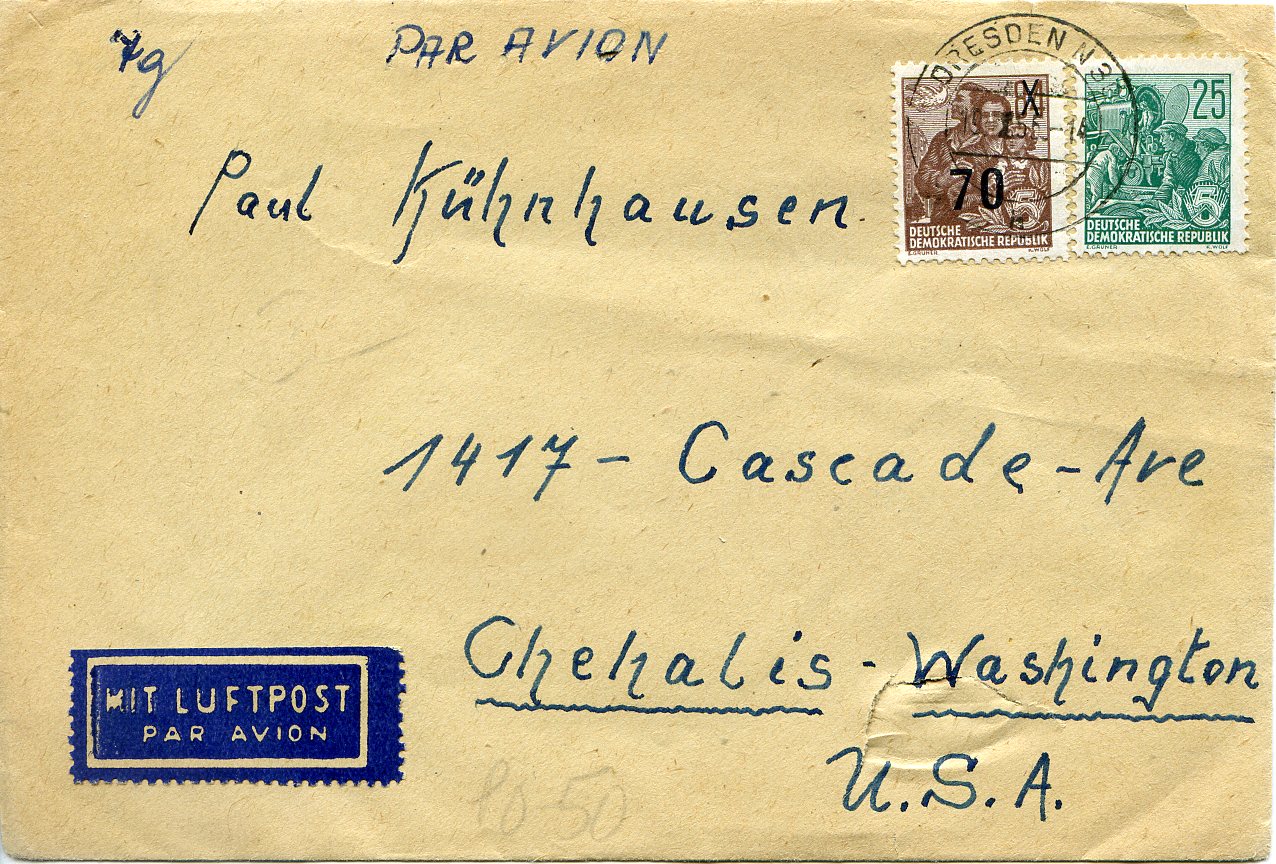 PAR AVION
DRESDEN N
84
70
DEUTSCHE
DEMOKRATISCHE REPUBLIK
E.GRUNER K.WOLF
25
5
DEUTSCHE
DEMOKRATISCHE REPUBLIK
E.GRUNER K.WOLF
Paul Kühnhausen
1417 - Cascade - Ave
Chehalis - Washington
U.S.A.
MIT LUFTPOST
PAR AVION